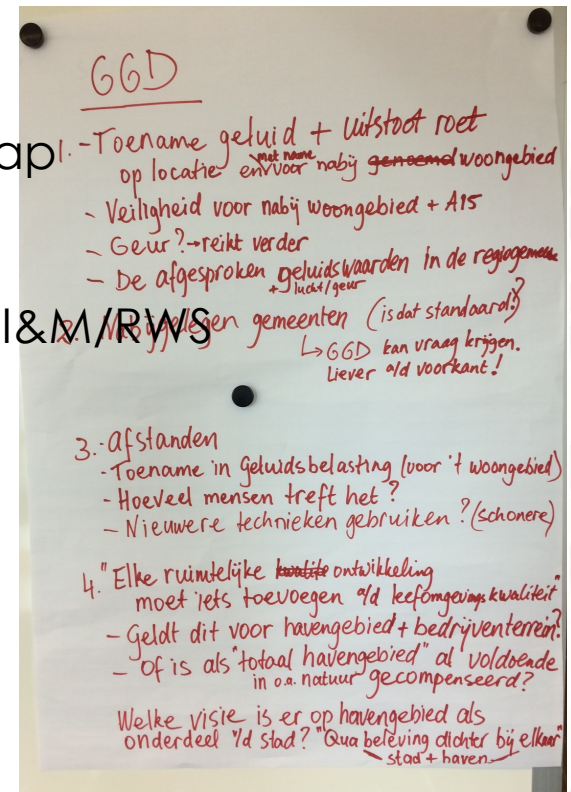 GGD
ap
1. - Toename geluid + uitstoot roet
op locatie en voor met name nabij genoemd woongebied
- Veiligheid voor nabij woongebied + A15
- Geur? → reikt verder
- De afgesproken geluidswaarden in de regiogemeente
+ lucht/geur
I&M/RWS
2. Nabijgelegen gemeenten (is dat standaard?)
↳ GGD kan vraag krijgen.
Liever a/d voorkant!
3. - afstanden
- Toename in geluidsbelasting (voor 't woongebied)
- Hoeveel mensen treft het?
- Nieuwere technieken gebruiken? (schonere)
4. "Elke ruimtelijke kwalite ontwikkeling
moet iets toevoegen a/d leefomgevingskwaliteit"
- Geldt dit voor havengebied + bedrijventerrein?
- Of is als "totaal havengebied" al voldoende
in o.a. natuur gecompenseerd?
Welke visie is er op havengebied als
onderdeel v/d stad? "Qua beleving dichter bij elkaar"
stad + haven